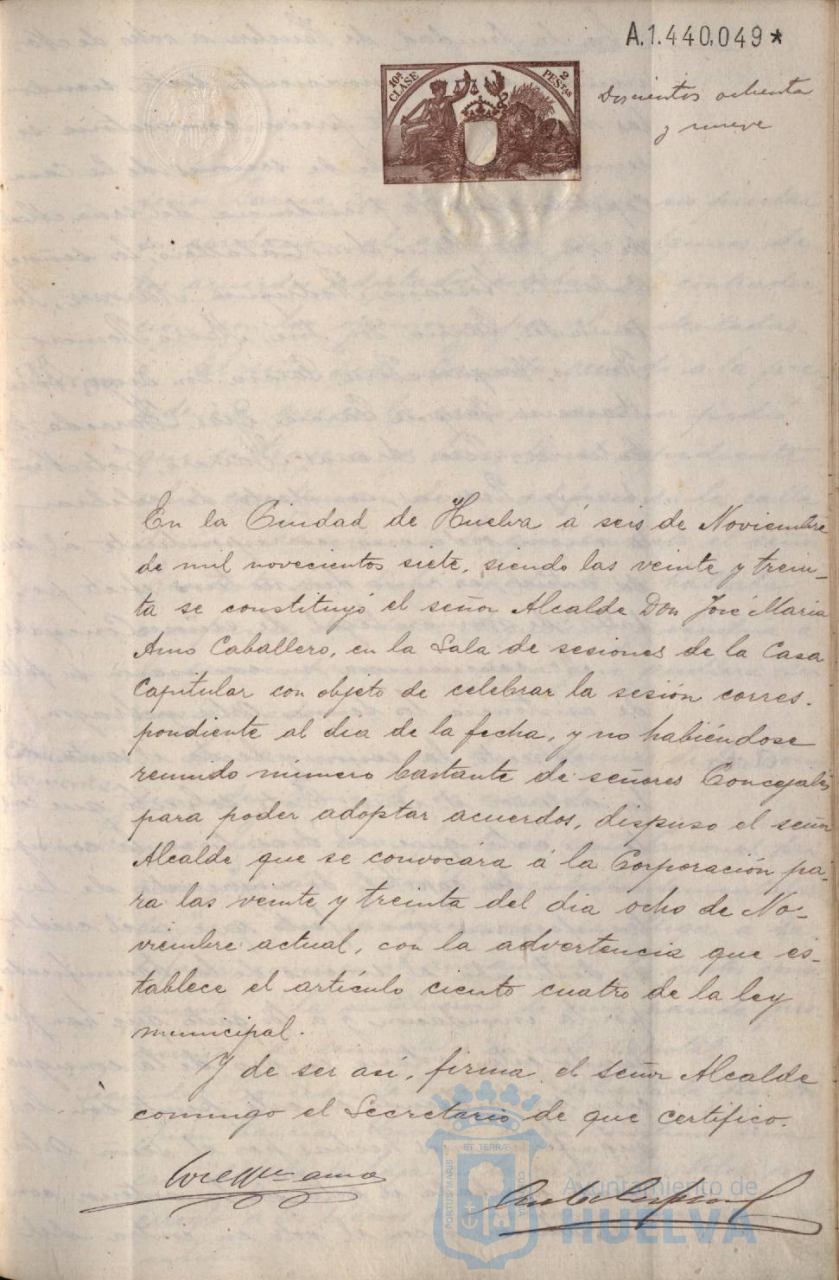 A.1.440.049*
10ª CLASE
2 PESTAS
Doscientos ochenta
y nueve
En la Ciudad de Huelva á seis de Noviembre
de mil novecientos siete, siendo las veinte y trein-
ta se constituyó el señor Alcalde Don José Maria
Amo Caballero, en la Sala de sesiones de la Casa
Capitular con objeto de celebrar la sesión corres-
pondiente al dia de la fecha, y no habiéndose
reunido número bastante de señores Concejales
para poder adoptar acuerdos, dispuso el señor
Alcalde que se convocára á la Corporación pa-
ra las veinte y treinta del dia ocho de No-
viembre actual, con la advertencia que es-
tablece el artículo ciento cuatro de la ley
municipal.
Y de ser así, firma el señor Alcalde
conmigo el Secretario de que certifico.
José Mª Amo
ET TERRÆ
PORTUS MARIS
CUSTODIO
Ayuntamiento de
HUELVA